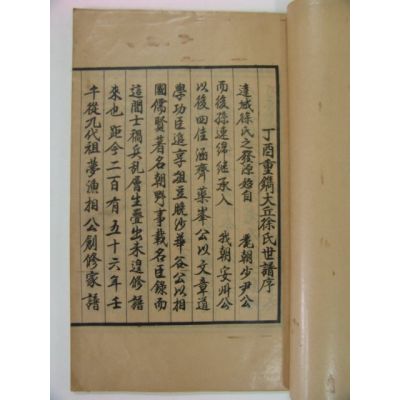 丁酉重鐫大丘徐氏世譜序
達城徐氏之發源始自 麗朝少尹公
而後孫連綿継承入 我朝安州公
以後四佳涵齋藥峯公以文章道
學功臣追享俎豆晩沙華谷公以相
國儒賢著名朝野事載名臣録而
這間士禍兵亂層生疊出未遑修譜
來也 距今二百有五十六年壬
午從九代祖夢漁相公創修家譜